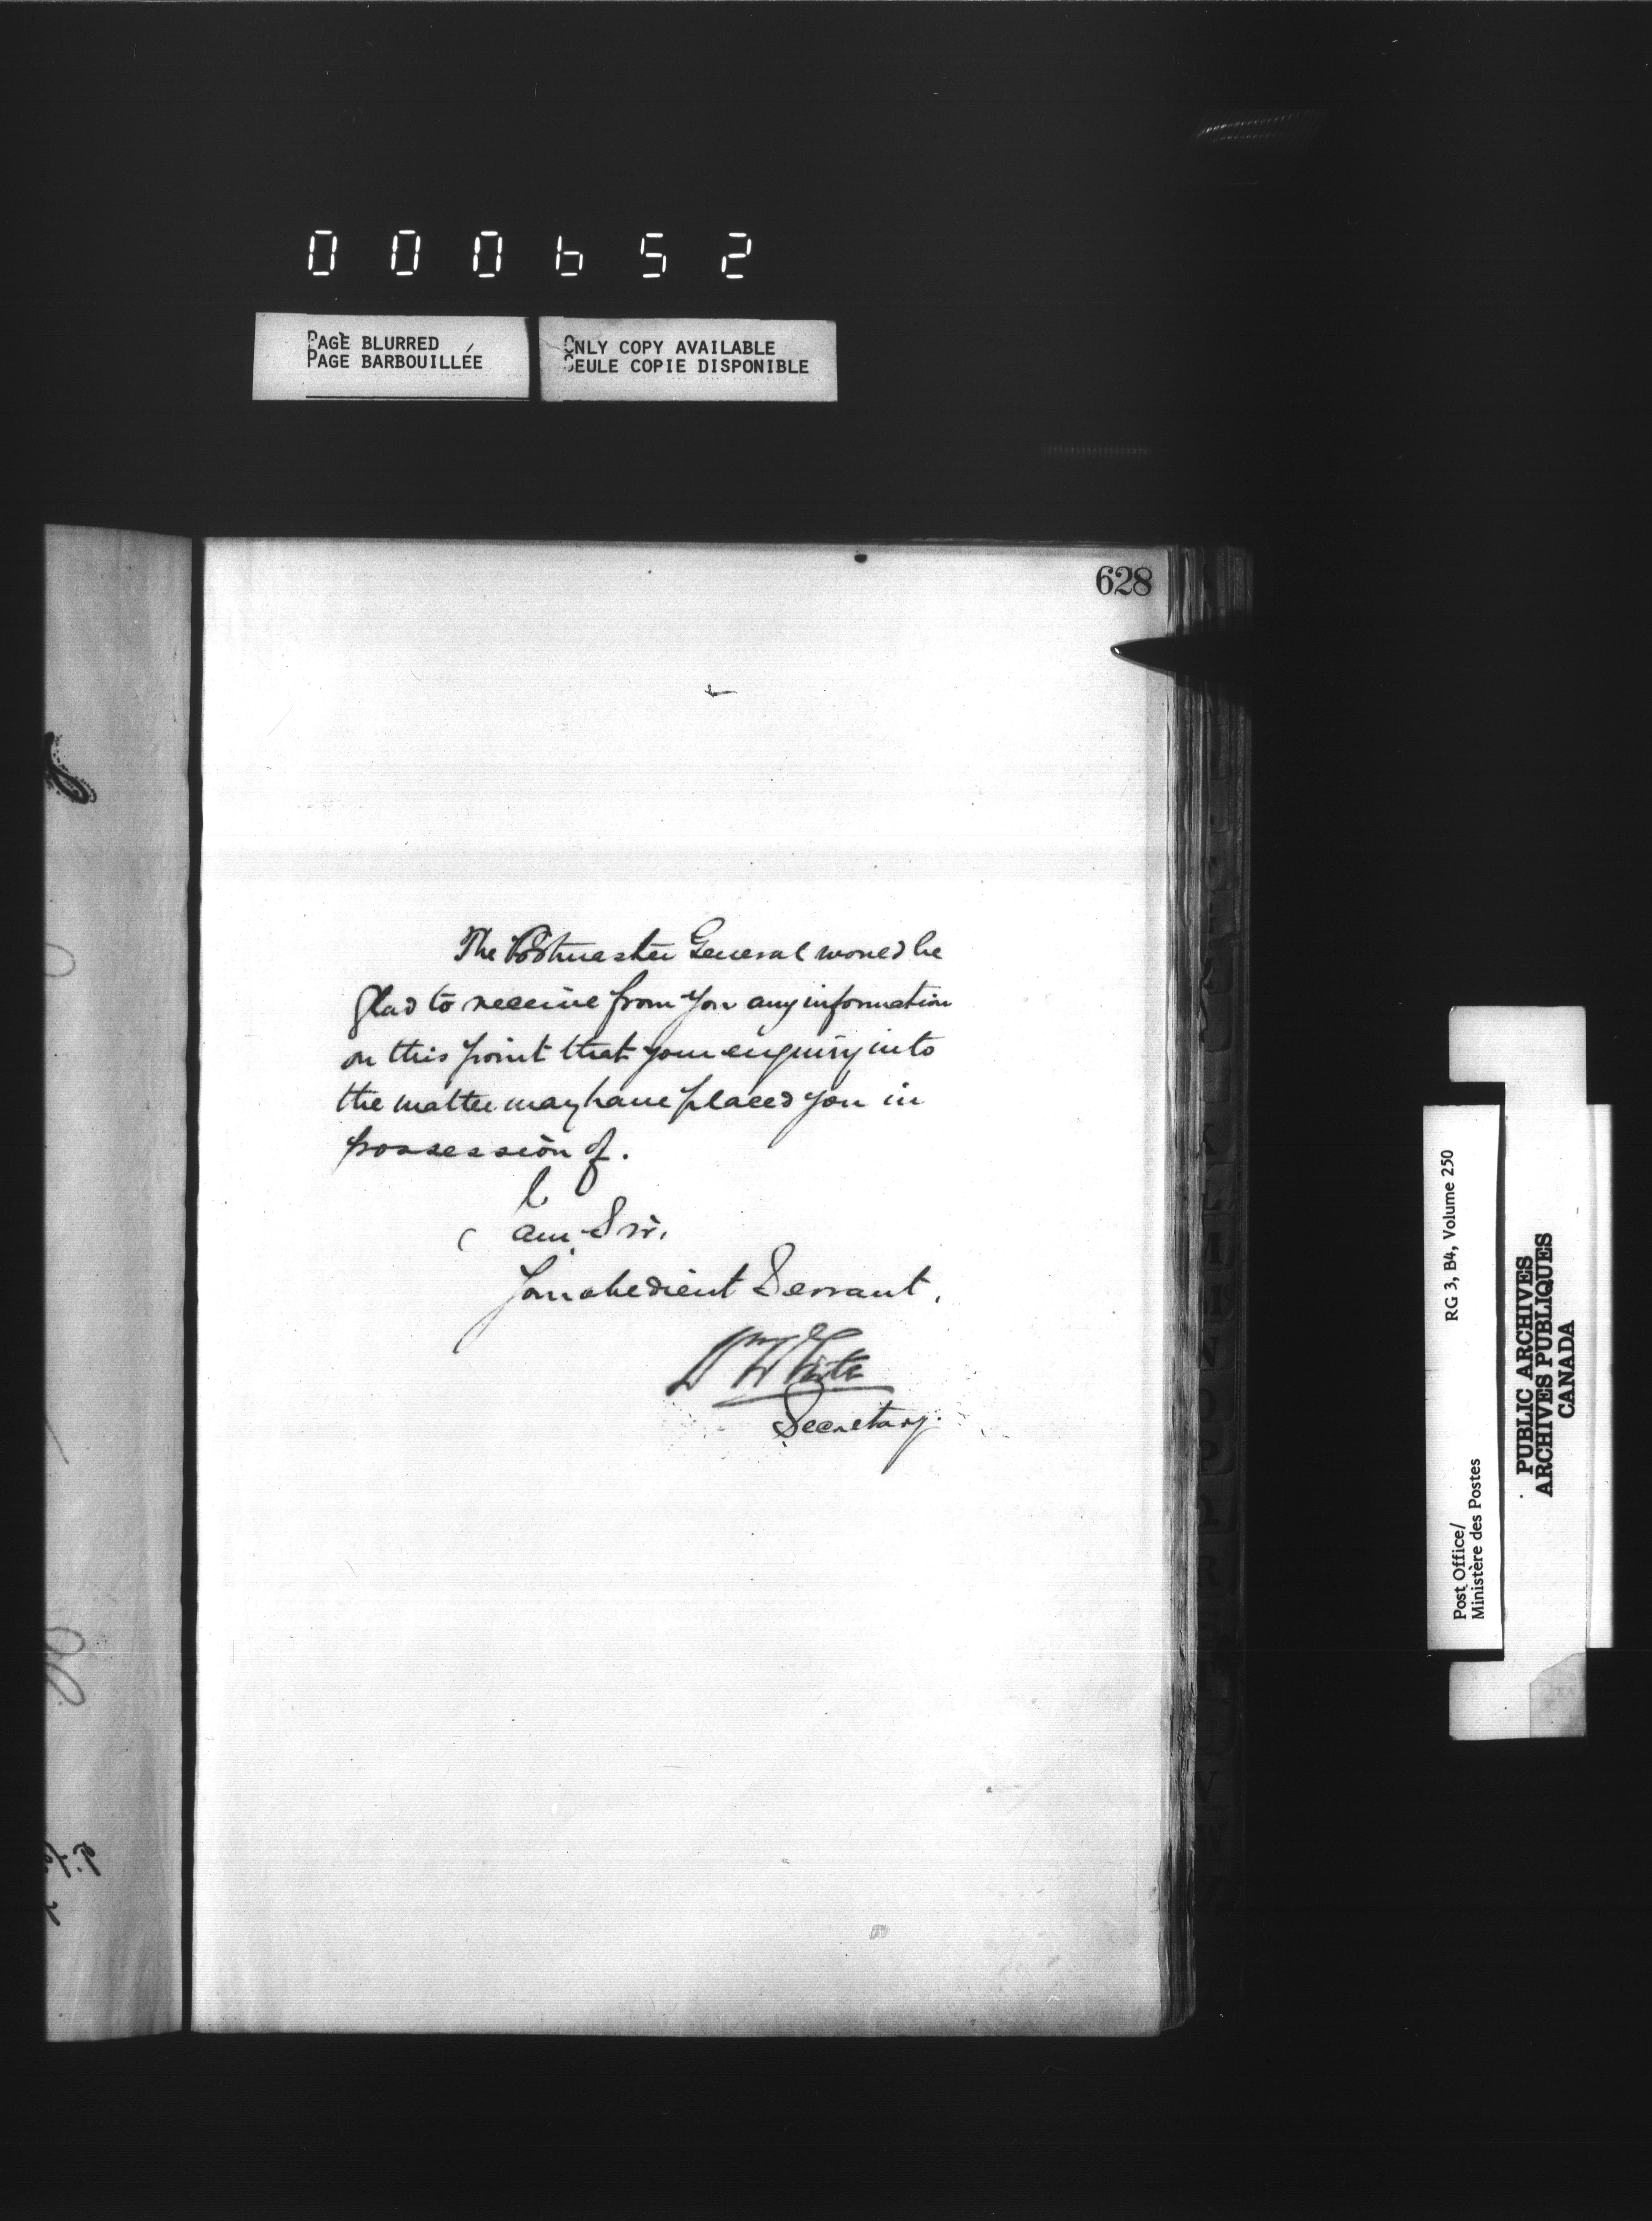 000652
PAGE BLURRED
PAGE BARBOUILLÉE
ONLY COPY AVAILABLE
SEULE COPIE DISPONIBLE
628
The Postmaster General would be
Glad to receive from you any information
on this point that your enquiry into
the matter may have placed you in
possession of.
I
am Sir,
Your obedient Servant,
Wm White
Secretary.
RG 3, B4, Volume 250
Post Office/
Ministère des Postes
PUBLIC ARCHIVES
ARCHIVES PUBLIQUES
CANADA